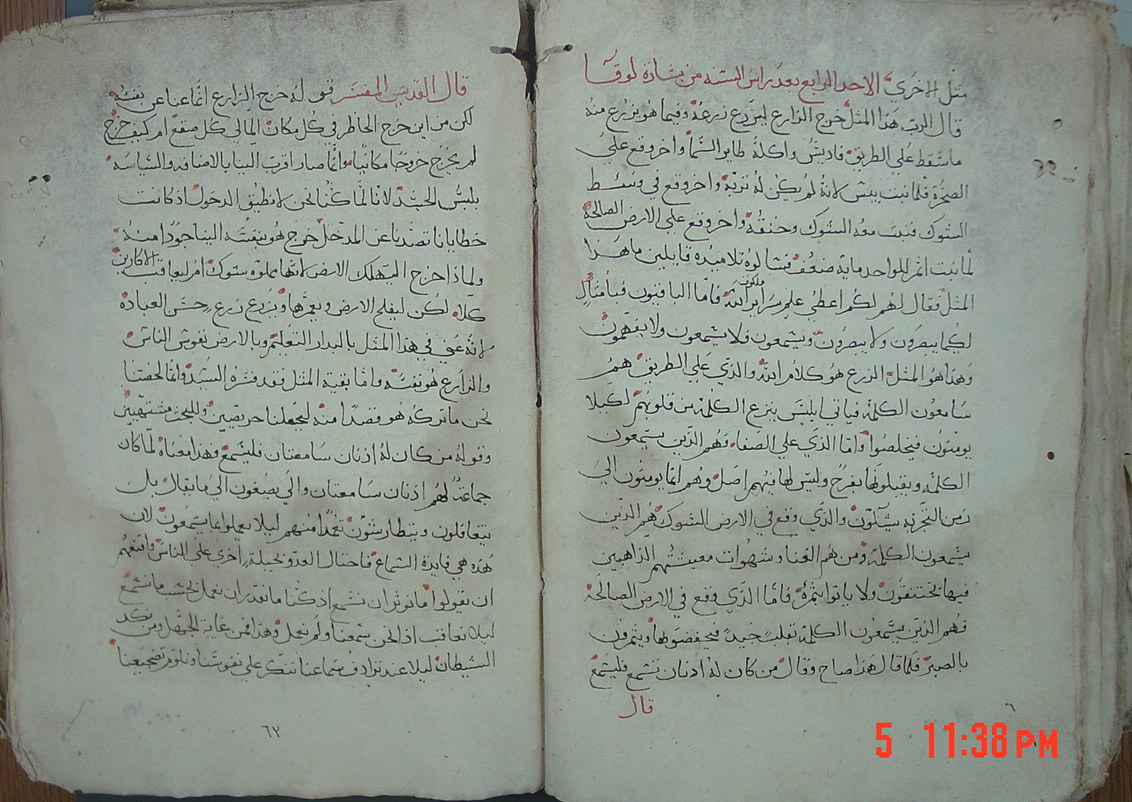 مثل الاخري الاحد الرابع بعد راس السنه من بشارة لوقا
قال الرب هذا المثل خرج الزارع ليزرع زرعه وفيما هو يزرع منه
ما سقط علي الطريق فاديس واكله طاير السما واخر وقع علي
الصخرة فلما نبت يبس لانه لم يكن له تربة واخر وقع في وسط
الشوك فنبت معه الشوك وخنقه واخر وقع علي الارض الصالحة
لما نبت اثمر للواحد ماية ضعف فسالوه تلاميذه قايلين ما هذا
المثل فقال لهم لكم اعطي علم سراير ملكوت الله فاما الباقون فبامثال
لكيما يبصرون ولا يبصرون ويسمعون فلا يسمعون ولا يفهمون
وهذا هو المثل الزرع هو كلام الله والذي علي الطريق هم
سامعون الكلمة فياتي ابليس ينزع الكلمة من قلوبهم لكيلا
يومنون فيخلصوا واما الذي علي الصفاء فهم الذين يسمعون
الكلمة ويقبلونها بفرح وليس لها فيهم اصل وهم انما يومنون الي
زمن التجربه يشكون والذي وقع في الارض الشوك هم الذين
يسمعون الكلمة ومن هم الغنا وشهوات معيشتهم الذاهبين
فيها تختنقون ولا ياتوا بثمرة فاما الذي وقع في الارض الصالحة
فهم الذين يسمعون الكلمة بقلب جيد فيحفضونها ويثمرون
بالصبر فلما قال هذا صاح وقال من كان له اذنان تسمع فليسمع
قال
قال القديس المفسر قوله خرج الزارع انما عنا عن نفسه
لكن من اين خرج الحاظر في كل مكان المالي كل صقع ام كيف خرج
لم يخرج خروجا مكانيا وانما صار اقرب الينا بالاضافه والتانسه
بلبس الجسد لاننا لما كنا نحن لا نطيق الدخول اذ كانت
خطايانا تصدنا عن المدخل خرج هو بنفسه الينا جودا منه
ولماذا خرج ايهلك الارض انها مملوه شوك ام ليعاقب الاكارين
كلا لكن ليفلح الارض ويعمرها ويزرع زرع حسن العبادة
لانه عني في هذا المثل بالبدار التعليم وبالارض نفوس الناس
والزارع هو نفسه واما بقية المثل فقد فسره السيد وانما لحصنا
نحن ما تركه هو قصدا منه ليجعلنا حريصين وللبحث مشتهيين
وقوله من كان له اذنان سامعتان فليسمع وهذا معناه لما كان
جماعة لهم اذنان سامعتان والي يصيغون الي ما يقال بل
يتغافلون ويتطارشون تعمدا منهم ليلا يعملوا بما يسمعون لان
هذه هي فايدة السماع فاحتال العدو بحيلة اخري علي الناس واقنعهم
ان يقولوا ما نوثر ان نسمع اذ كنا ما نقدر ان نعمل بحسب ما نسمع
ليلا نعاقب اذا نحن سمعنا ولم نعمل وهذا فمن غاية الجهل ومن نكد
الشيطان ليلا عند ترادف سماعنا نتنكر علي نفوسنا ونلوم تضجيعنا
٦٢
5 11:38 PM